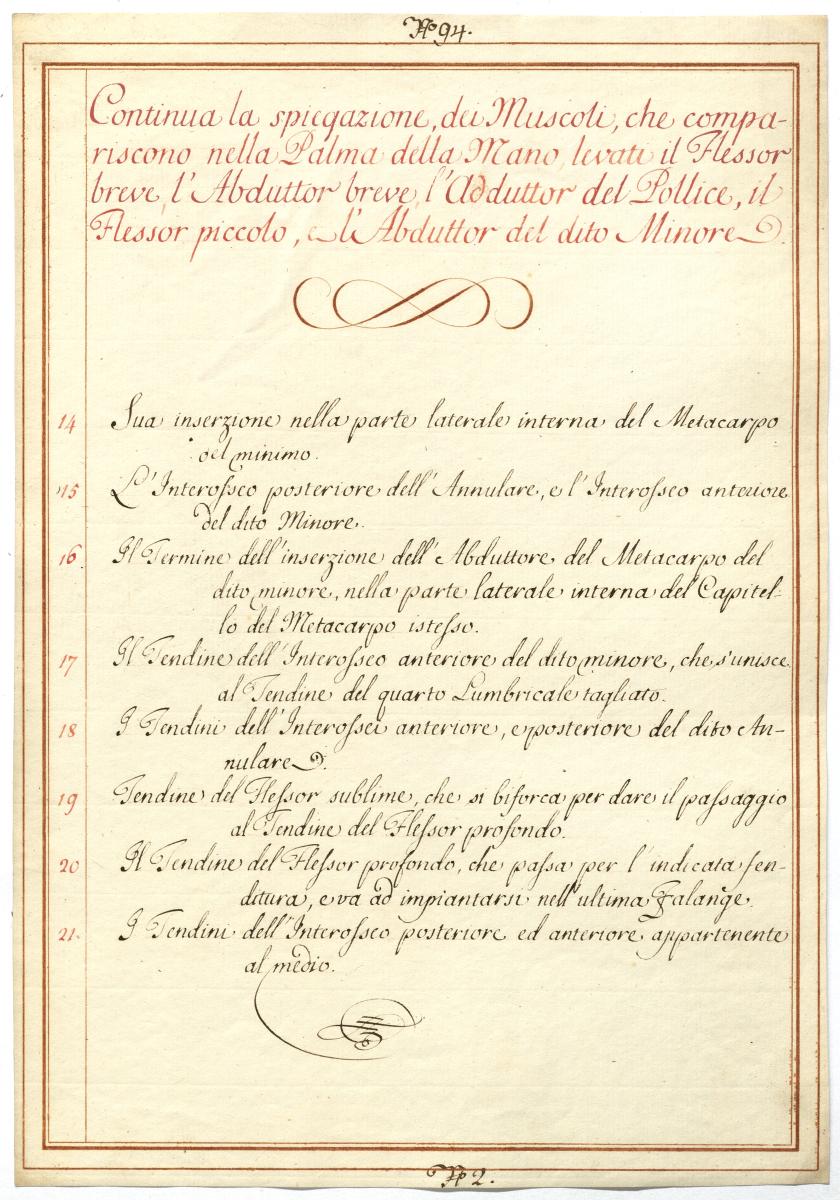 No 94.
Continua la spiegazione, dei Muscoli, che compa-
riscono nella Palma della Mano, levati il Flessor
breve, l'Abduttor breve, l'Adduttor del Pollice, il
Flessor piccolo, e l'Abduttor del dito Minore.
14 Sua inserzione nella parte laterale interna del Metacarpo
del minimo.
15 L'Interosseo posteriore dell'Annulare, e l'Interosseo anteriore
del dito Minore.
16. Il Termine dell'inserzione dell'Abduttore del Metacarpo del
dito minore, nella parte laterale interna del Capitel-
lo del Metacarpo istesso.
17 Il Tendine dell'Interosseo anteriore del dito minore, che s'unisce
al Tendine del quarto Lumbricale tagliato.
18 I Tendini dell'Interossei anteriore, e posteriore del dito An-
nulare.
19 Tendine del Flessor sublime, che si biforca per dare il passaggio
al Tendine del Flessor profondo.
20 Il Tendine del Flessor profondo, che passa per l'indicata fen-
ditura, e va ad impiantarsi nell'ultima Falange.
21. I Tendini dell'Interosseo posteriore ed anteriore appartenente
al medio.
No 2.